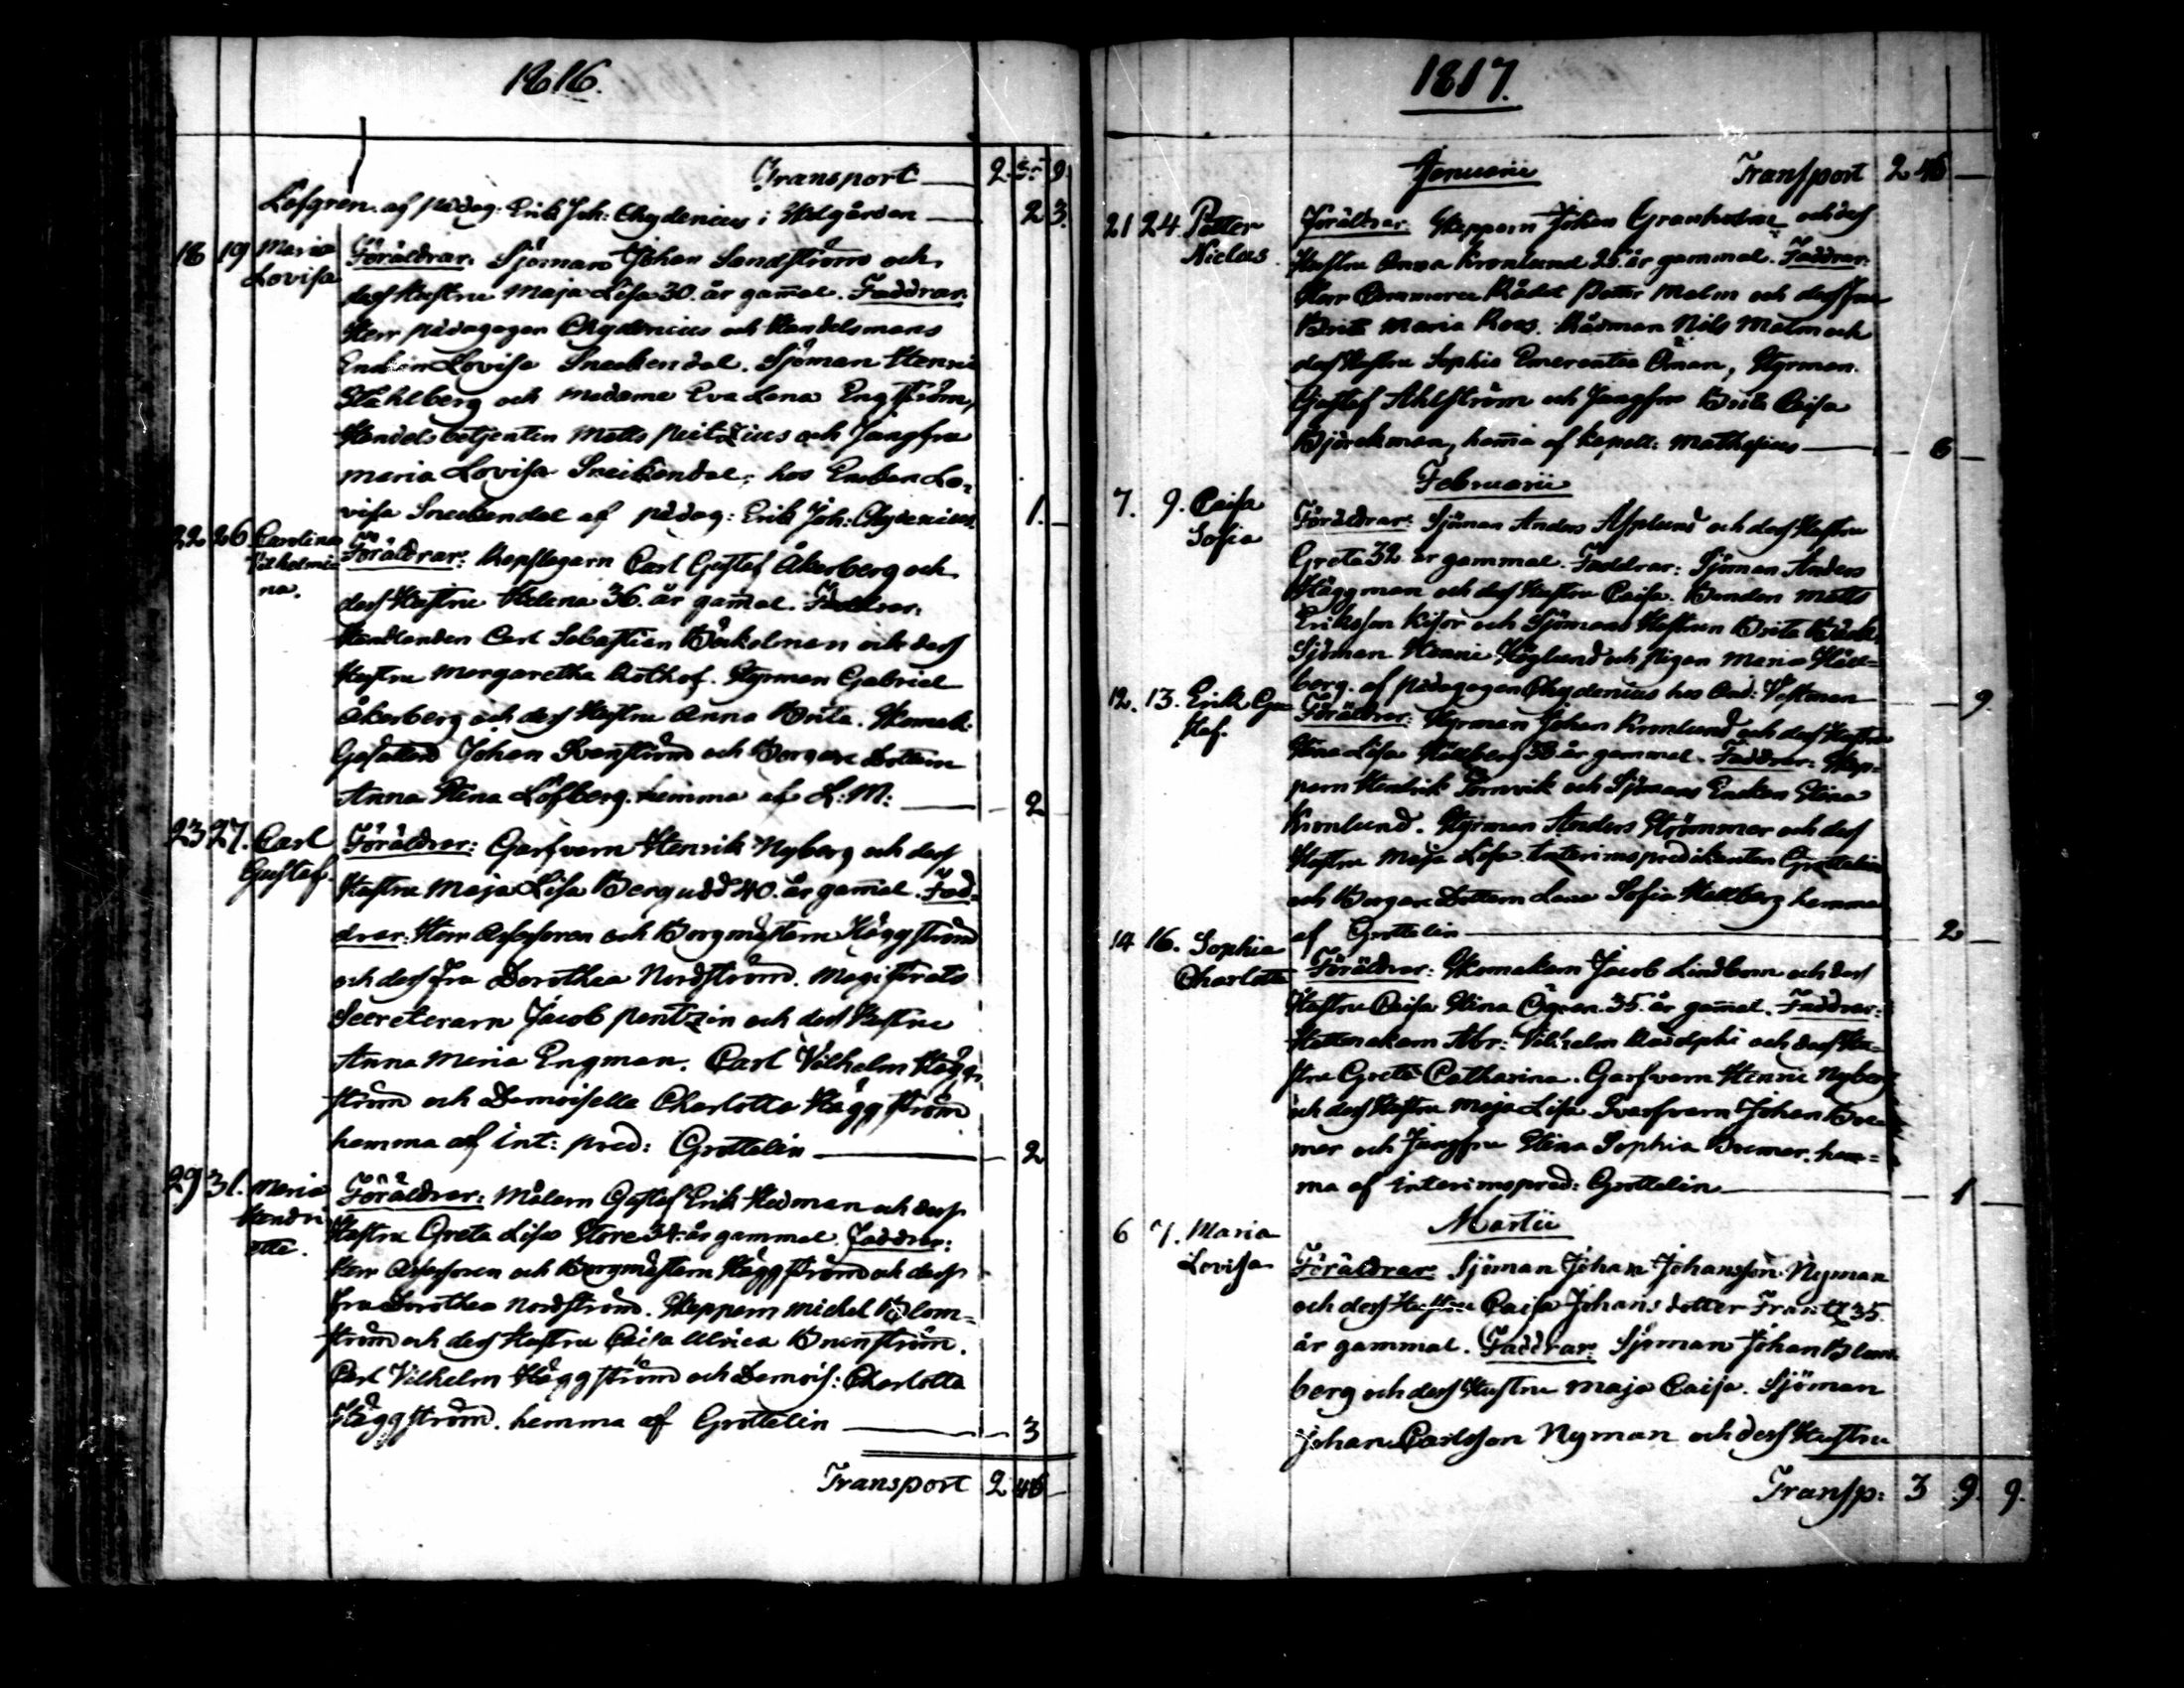 1816.
Transport 2 35 9.
Löfgren. af pädag: Erik Joh: Chydenius i Widgårdan 2 3.
18 19 Maria Föräldrar: Sjöman Johan Sandström och
Lovisa dess Hustru Maja Lisa 30. år gam̄al. Faddrar:
Herr pädagogen Chydenius och Handelsmans
Enkan Lovisa Sneckendal. Sjöman Henric
Ståhlberg och Madame Eva Lena Engström,
Handelsbetjenten Matts Peitzius och Jungfru
Maria Lovisa Sneckendal; hos Enkan Lo-
visa Sneckendal af pädag: Erik Joh: Chydenius. 1.
22 26 Carolina Föräldrar: Repslagarn Carl Gustaf Åkerberg och
Vilhelmi-
na. dess Hustru Helena 36. år gam̄al. Faddrar:
Handlanden Carl Sebastian Båkelman och dess
Hustru Margaretha Rothof. Styrman Gabriel
Åkerberg och dess Hustru Anna Brita. Skomak:
Gesällen Johan Svanström och Borgare Dottern
Anna Stina Löfberg. hemma af L: M: 2
23 27. Carl Föräldrar: Garfvarn Henrik Nyberg och dess
Gustaf. Hustru Maja Lisa Bergudd 40. år gam̄al. Fad-
drar: Herr Assessoren och Borgmästarn Häggström
och dess fru Dorothea Nordström. Magistrats
Secreterarn Jacob Pentzin och dess Hustru
Anna Maria Engman. Carl Vilhelm Hägg-
ström och Demoiselle Charlotta Häggström
hemma af int: pred: Grottelin 2
29 31. Maria Föräldrar: Målarn Gustaf Erik Hedman och dess
Hendri
etta. Hustru Greta Lisa Store 34. år gammal. Faddrar:
Herr Assessoren och Borgmästarn Häggström och dess
fru Dorothea Nordström. Skepparn Michel Blom-
ström och dess Hustru Caisa Ulrica Brunström.
Carl Vilhelm Häggström och Demois: Charlotta
Häggström. hemma af Grottelin 3
Transport 2 46
1817.
Januarii Transport 2 46
21 24 Petter Föräldrar: Skepparn Johan Granholm och dess
Niclas. Hustru Anna Kronlund 25. år gammal. Faddrar:
Herr Commerce Rådet Petter Malm och dess fru
Brita Maria Roos. Rådman Nils Malm och
dess Hustru Sophia Emerentia Öman, Styrman
Gustaf Ahlström och Jungfru Brita Caisa
Björkman, hem̄a af kapell: Mathesius 6
Februarii
7. 9. Caisa Föräldrar: Sjöman Anders Asplund och dess Hustru
Sofia Greta 32 år gammal. Faddrar: Sjöman Anders
Häggman och dess Hustru Caisa. Bonden Matts
Eriksson Kisor och Sjömans Hustrun Brita
Sjöman Henric Höglund och Pigan Maria Häll-
berg. af pädagogen Chydenius hos 9.
12. 13. Erik Gu- Föräldrar: Styrman Johan Kronlund och dess Hustru
staf. Stina Lisa Hällberg 33 år gammal. Faddrar: Skep-
parn Hendrik Törnvik och Sjömans Enckan Stina
Kronlund. Styrman Anders Strömmer och dess
Hustru Maja Lisa. Interimspredikanten Grottelin
och Borgare Dottern Lena Sofia Hellberg hemma
af Grottelin 2
14 16. Sophia Föräldrar: Skomakarn Jacob Lindbom och dess
Charlotta Hustru Caisa Stina Ögren. 35. år gam̄al. Faddrar:
Hattmakarn Abr: Vilhelm Rudolphi och dess Hu-
stru Greta Catharina. Garfvarn Henric Nyberg
och dess Hustru Maja Lisa. Svarfvarn Johan Bre-
mer och Jungfru Stina Sophia Bremer. hem-
ma af Interimspred: Grottelin 1
Martii
6 7. Maria Föräldrar: Sjöman Johan Johansson Nyman
Lovisa och dess Hustru Caisa Johans dotter Frantz 35.
år gammal. Faddrar: Sjöman Johan Blom-
berg och dess Hustru Maja Caisa. Sjöman
Johan Carlsson Nyman och dess Hustru
Transp: 3 9. 9.